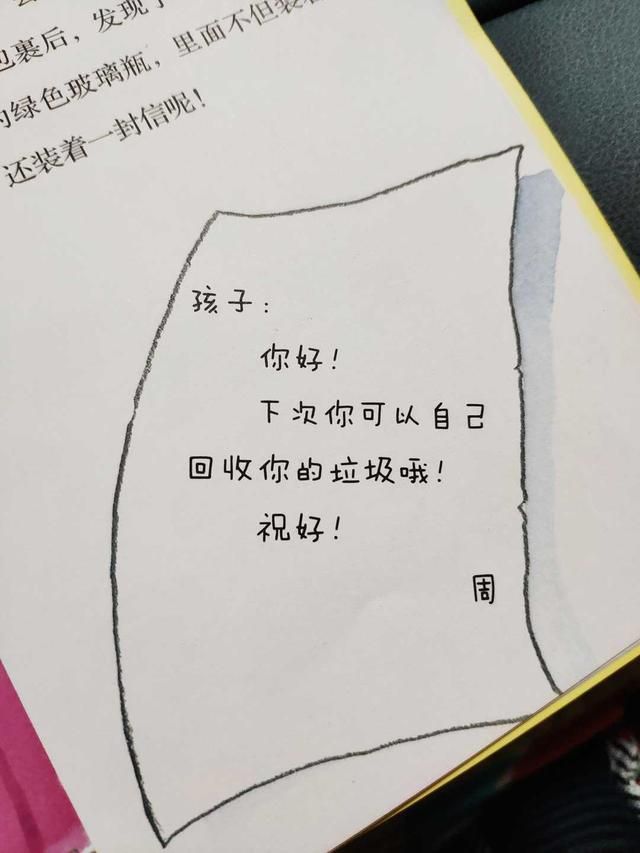 包裹后，发现了
的绿色玻璃瓶，里面不但装着
还装着一封信呢！
孩子：
你好！
下次你可以自己
回收你的垃圾哦！
祝好！
周